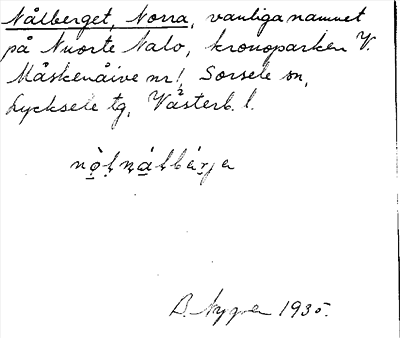 Nålberget, Norra, vanliga namnet
på Nuorte Nalo, kronoparken V.
Måskenåive nr 1, Sorsele sn,
Lycksele tg, Västerb. l.
B. Nygren 1935.